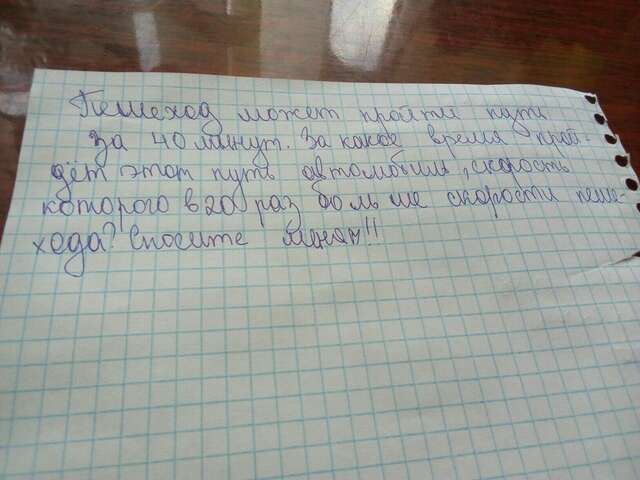 Пешеход может пройти путь
за 40 минут. За какое время прой-
дёт этот путь автомобиль, скорость
которого в 20 раз больше скорости пеше-
хода? Спосите меняи!!